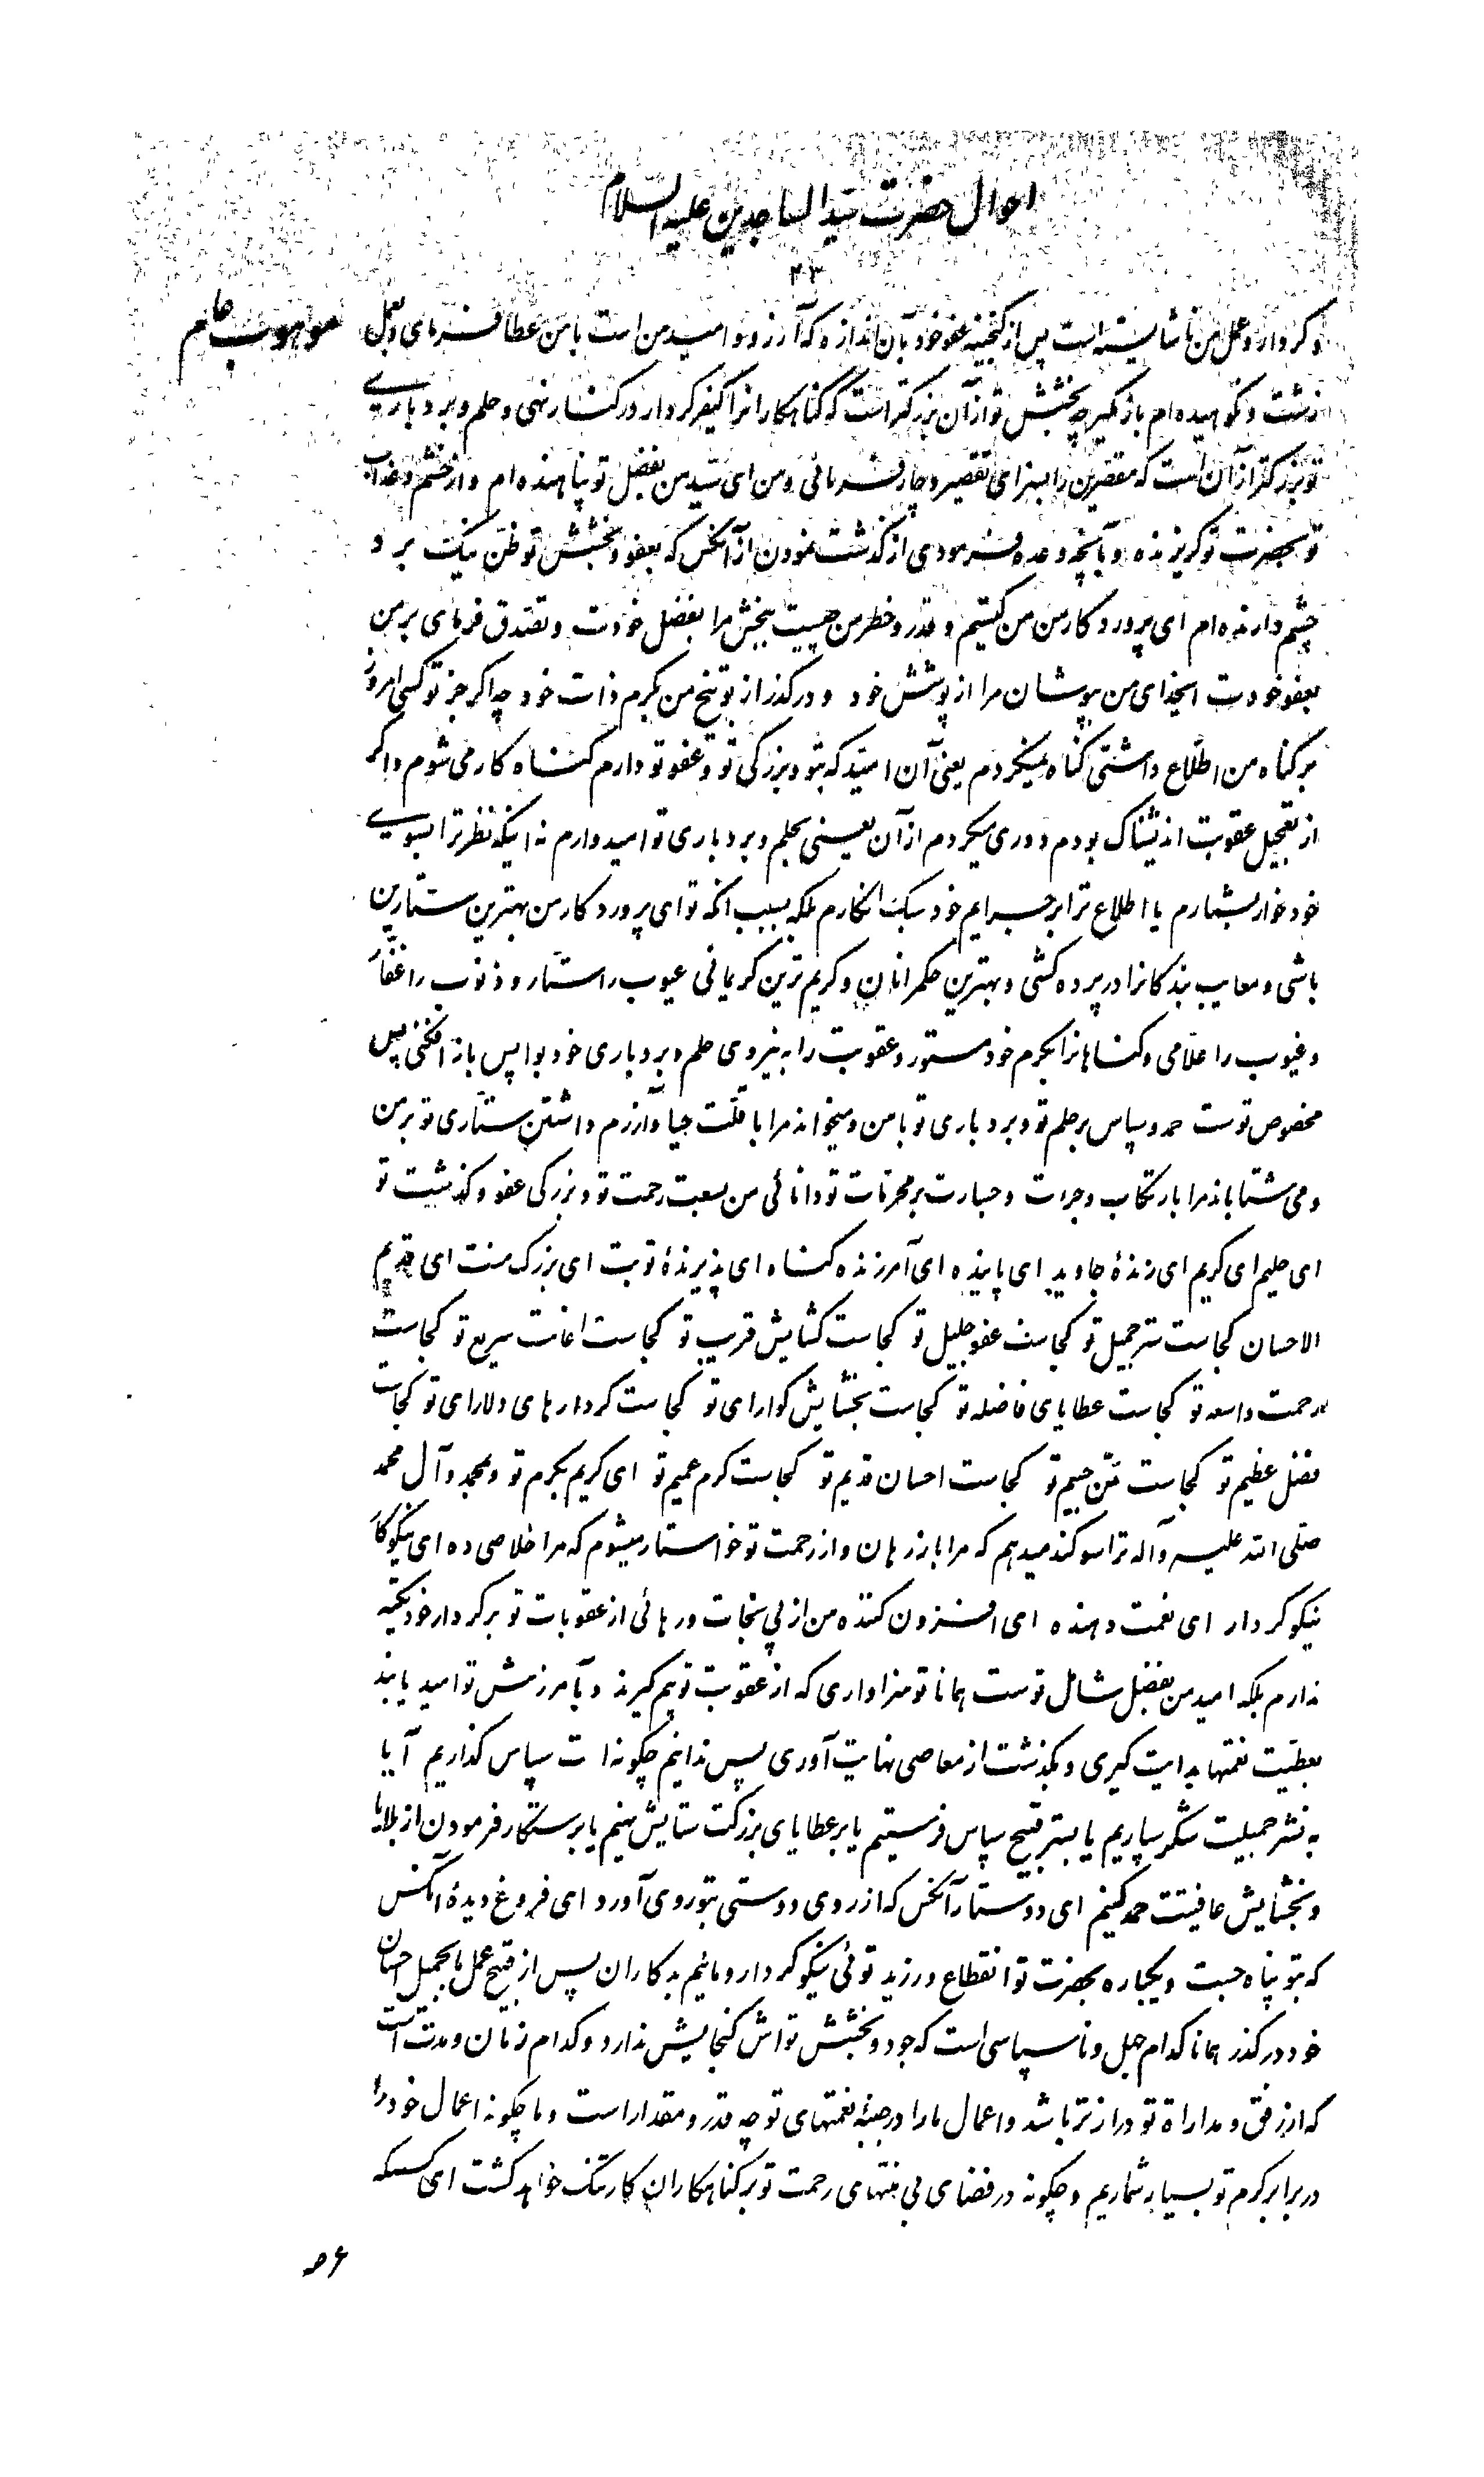 احوال حضرت سید الساجدین علیه السلام
۴۳
و کردار و عمل من ناشایسته است پس از گنجینه عفو خود بآن اندازه که آرزو و امید من است با من عطا فرمای و بعمل
زشت و نکوهیده ام باز مگیر چه بخشش تو از آن بزرگتر است که گناهکارانرا کیفر کردار در کنار نهی و حلم و بردباری
تو بزرگتر از آن است که مقصرین را بسزای تقصیر دچار فرمائی و من ای سید من بفضل تو پناهنده ام و از خشم و عذاب
تو بحضرت تو گریزنده و بآنچه وعده فرمودی از گذشت نمودن از آنکس که بعفو و بخشش تو ظن نیک برد
چشم دارنده ام ای پروردکار من من کیستم و قدر و خطر من چیست ببخش مرا بفضل خودت و تصدق فرمای بر من
بعفو خودت ایخدای من بپوشان مرا از پوشش خود و درگذر از توبیخ من بکرم ذات خود چه اگر جز تو کسی امروز
بر گناه من اطلاع داشتی گناه نمیکردم یعنی آن امید که بتو و بزرگی تو و عفو تو دارم گناه کار می شوم و اگر
از تعجیل عقوبت اندیشناک بودم دوری میکردم از آن یعنی بحلم و بردباری تو امیدوارم نه اینکه نظر ترا بسوی
خود خوار بشمارم یا اطلاع ترا بر جرایم خود سبک انگارم بلکه بسبب آنکه تو ای پروردکار من بهترین ستارین
باشی و معایب بندگانرا در پرده کشی و بهترین حکمرانان و کریم ترین کریمانی عیوب را ستار و ذنوب را غفار
و غیوب را علامی و گناهانرا بکرم خود مستور و عقوبت را به نیروی حلم و بردباری خود بواپس باز افکنی پس
مخصوص توست حمد و سپاس بر حلم تو و بردباری تو با من و میخواند مرا با قلت حیا و آزرم داشتن ستاری تو بر من
و می شتاباند مرا بارتکاب و جرات و جسارت بر محرمات تو دانائی من بسعت رحمت تو و بزرگی عفو و گذشت تو
ای حلیم ای کریم ای زندهٔ جاوید ای پاینده ای آمرزنده گناه ای پذیرندهٔ توبت ای بزرگ منت ای قدیم
الاحسان کجاست ستر جمیل تو کجاست عفو جلیل تو کجاست گشایش قریب تو کجاست اغاثت سریع تو کجاست
رحمت واسعه تو کجاست عطایای فاضله تو کجاست بخشایش گوارای تو کجاست کردارهای دلارای تو کجاست
فضل عظیم تو کجاست منن جسیم تو کجاست احسان قدیم تو کجاست کرم عمیم تو ای کریم بکرم تو و بمحمد و آل محمد
صلی الله علیه و آله ترا سوگند میدهم که مرا باز رهان و از رحمت تو خواستار میشوم که مرا خلاصی ده ای نیکوکار
نیکو کردار ای نعمت دهنده ای افزون کننده من از پی نجات و رهائی از عقوبات تو بر کردار خود تکیه
ندارم بلکه امید من بفضل شامل توست همانا تو سزاواری که از عقوبت تو بیم گیرند و بآمرزش تو امید یابند
بعطیت نعمتها بدایت گیری و بگذشت از معاصی نهایت آوری پس ندانیم چگونه ات سپاس گذاریم آیا
به نشر جمیلت شکر سپاریم یا بستر قبیح سپاس فرستیم یا بر عطایای بزرگت ستایش نهیم یا بر رستگار فرمودن از بلایا
و بخشایش عافیتت حمد کنیم ای دوستار آنکس که از روی دوستی بتو روی آورد ای فروغ دیدهٔ آنکس
که بتو پناه جست و یکباره بحضرت تو انقطاع ورزید توئی نیکو کردار و مائیم بدکاران پس از قبیح عمل ما بجمیل احسان
خود در گذر همانا کدام جهل و ناسپاسی است که جود و بخشش تواش گنجایش ندارد و کدام زمان و مدت است
که از رفق و مداراة تو درازتر باشد و اعمال ما را در جنبهٔ نعمتهای تو چه قدر و مقدار است و ما چگونه اعمال خود را
در برابر کرم تو بسیار شماریم و چگونه در فضای بی منتهای رحمت تو بر گناهکاران کار تنگ خواهد گشت ای کسیکه